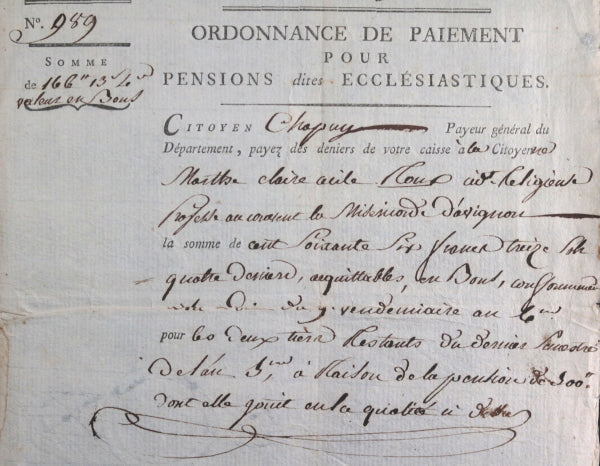 N°. 989
SOMME
de 166" 13 s 4 d
valeur en Bons
ORDONNANCE DE PAIEMENT
POUR
PENSIONS dites ECCLÉSIASTIQUES.
CITOYEN Chapuy Payeur général du
Département, payez des deniers de votre caisse à la Citoyenne
Marthe claire Roux cid. Religieuse
professe au couvent la Misericorde d'avignon
la somme de cent soixante six francs treize sols
quatre deniers, acquittables, en Bons, conformement
du 9 vendemiaire an 6
pour les deux tiers Restants du dernier semestre
De l'an 5, à Raison de la pension de 500"
dont elle jouit en la qualité ci